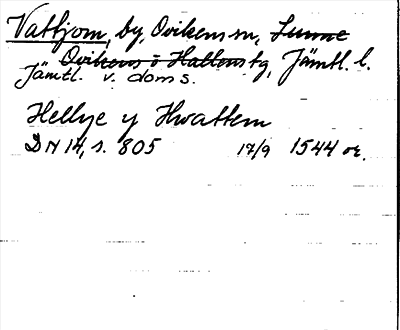 Vattjom, by, Ovikens sn, Sunne
Ovikens o Hallens tg, Jämtl. l.
Jämtl. v. doms.
Hellye y Hwattem
DN 14, s. 805 17/9 1544 or.